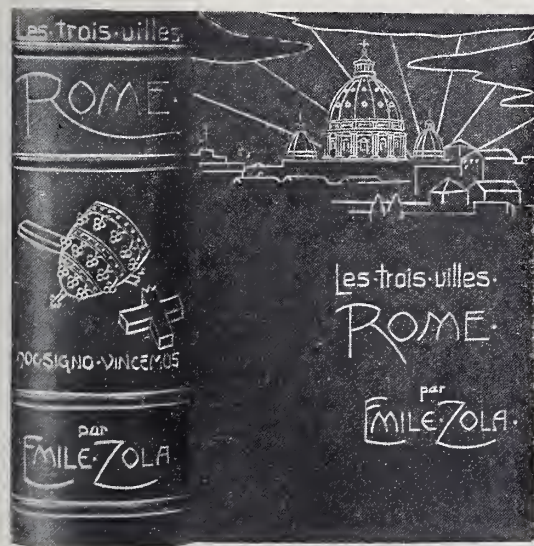 Les·trois·villes
ROME·
HOC·SIGNO·VINCEMOS
par
EMILE·ZOLA
Les·trois·villes·
ROME·
par
EMILE·ZOLA·